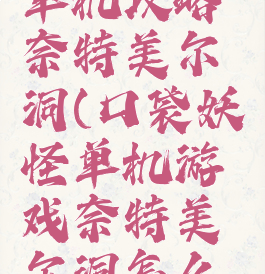 单机攻略
奈特美尔
洞(口袋妖
怪单机游
戏奈特美
尔洞怎么